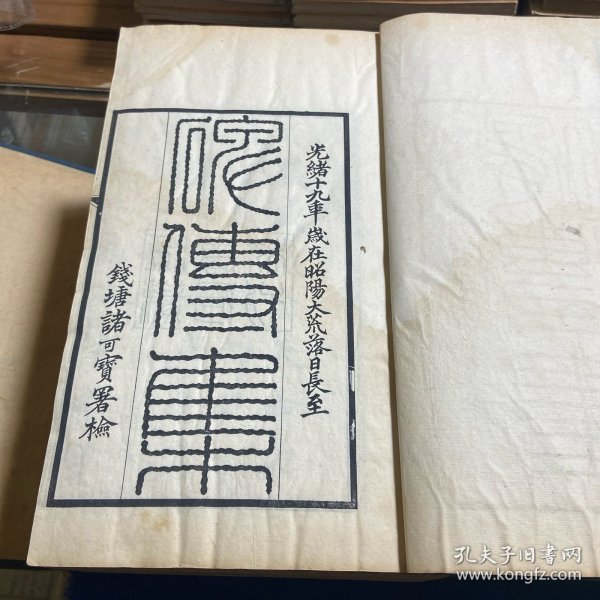 光緒十九年歲在昭陽大荒落日長至
碑傳集
錢塘諸可寶署檢
孔夫子旧书网
www.kongfz.com